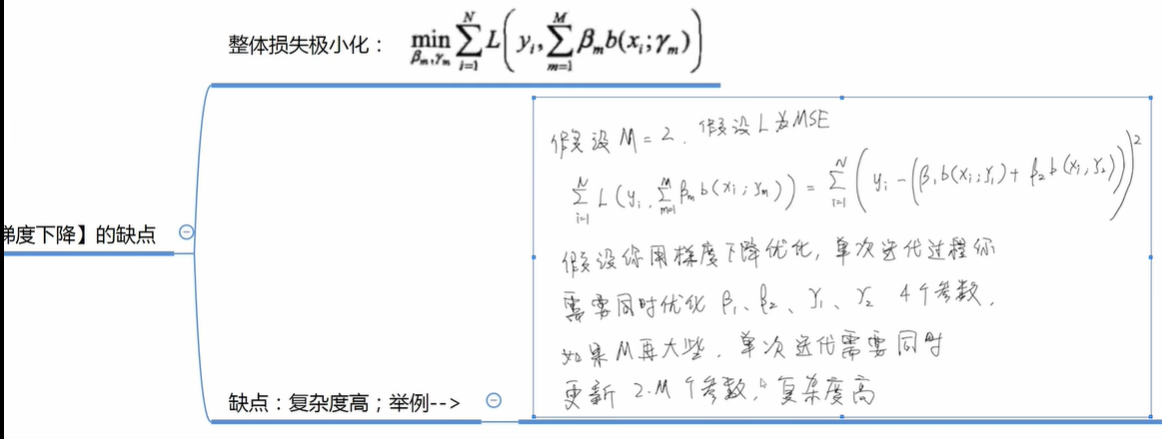 整体损失极小化： min_{β_m,γ_m} ∑_{i=1}^{N} L( y_i, ∑_{m=1}^{M} β_m b(x_i; γ_m) )
假设 M = 2. 假设 L 为 MSE
∑_{i=1}^{N} L(y_i, ∑_{m=1}^{M} β_m b(x_i; γ_m)) = ∑_{i=1}^{N} ( y_i - (β_1 b(x_i; γ_1) + β_2 b(x_i, γ_2)) )^2
假设你用梯度下降优化, 单次迭代过程你
需要同时优化 β_1、β_2、γ_1、γ_2 4个参数.
如果M再大些. 单次迭代需要同时
更新 2·M 个参数, 复杂度高
梯度下降】的缺点
缺点：复杂度高；举例-->